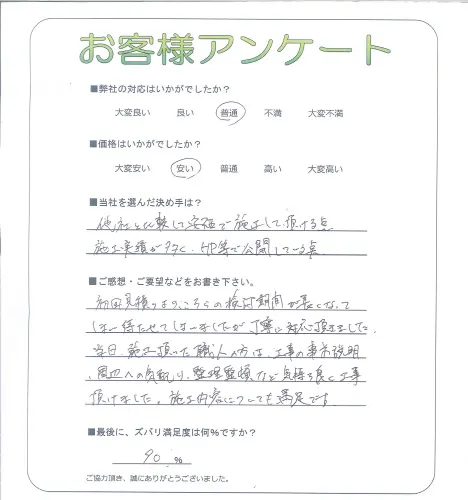 お客様アンケート
■弊社の対応はいかがでしたか?
大変良い 良い 普通 不満 大変不満
■価格はいかがでしたか?
大変安い 安い 普通 高い 大変高い
■当社を選んだ決め手は?
他社と比較して安価で施工して頂ける点
施工実績が多く、HP等で公開している点
■ご感想・ご要望などをお書き下さい。
初回見積りよりこちらの検討期間が長くなって
しまい待たせてしまいましたが丁寧に対応頂きました。
当日、施工頂いた職人の方は、工事の事前説明
、周辺への気配り、整理整頓など気持ち良く工事
頂けました。施工内容についても満足です
■最後に、ズバリ満足度は何%ですか?
90 %
ご協力頂き、誠にありがとうございました。